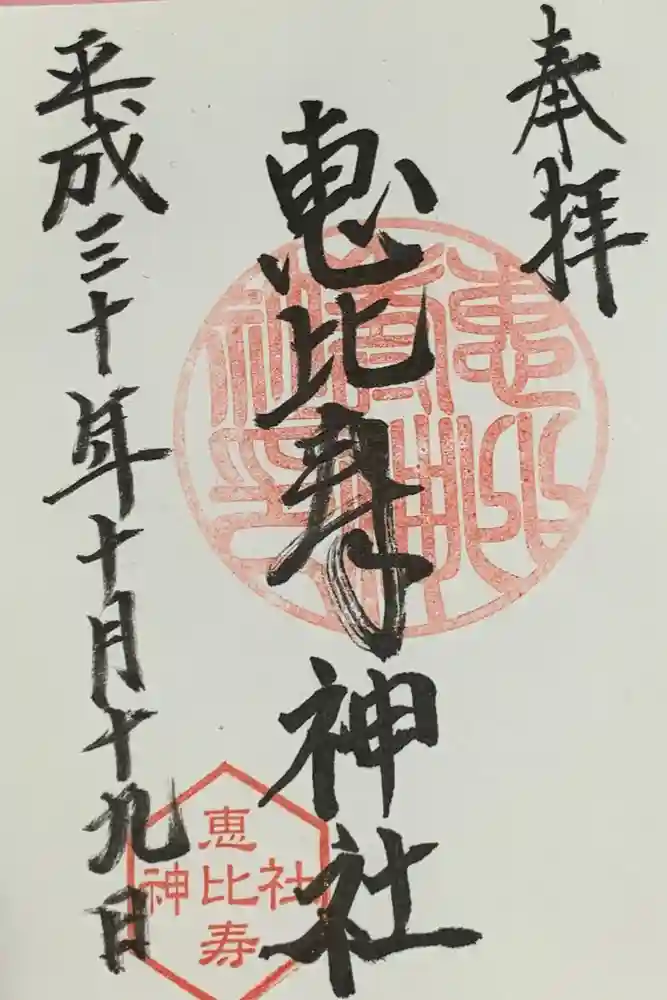 奉拝
恵比寿神社
平成三十年十月十九日
恵比寿神社
恵比寿
神社